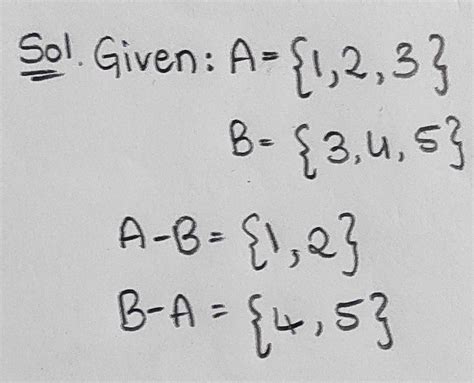 Sol. Given: A={1,2,3}
B={3,4,5}
A-B={1,2}
B-A={4,5}